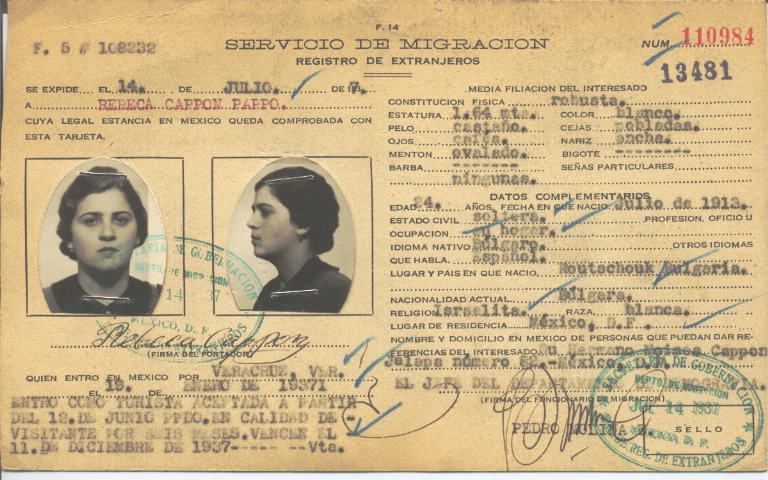 F. 14
F. 5 # 108232
SERVICIO DE MIGRACION
REGISTRO DE EXTRANJEROS
NUM. 110984
13481
SE EXPIDE EL 14. DE JULIO. DE 193 7.
A REBECA CAPPON PAPPO.
CUYA LEGAL ESTANCIA EN MEXICO QUEDA COMPROBADA CON
ESTA TARJETA.
Rebecca Cappon
(FIRMA DEL PORTADOR)
QUIEN ENTRO EN MEXICO POR VERACRUZ, VER.
EL 19. DE ENERO DE 1937
ENTRO COMO TURISTA ACEPTADA A PARTIR
DEL 12. DE JUNIO PPDO. EN CALIDAD DE -
VISITANTE POR SEIS MESES. VENCEN EL
11. DE DICIEMBRE DE 1937----- --Vta.
MEDIA FILIACION DEL INTERESADO
CONSTITUCION FISICA robusta.
ESTATURA 1.64 mts. COLOR blanco.
PELO castaño. CEJAS pobladas.
OJOS NARIZ ancha.
MENTON ovalado. BIGOTE --------
BARBA ------- SEÑAS PARTICULARES
ningunas.
DATOS COMPLEMENTARIOS
EDAD 24. AÑOS, FECHA EN QUE NACIO Julio de 1913.
ESTADO CIVIL soltera. PROFESION, OFICIO U
OCUPACION su hogar.
IDIOMA NATIVO Búlgaro. OTROS IDIOMAS
QUE HABLA. Español.
LUGAR Y PAIS EN QUE NACIO, Routschouk Bulgaria.
NACIONALIDAD ACTUAL Búlgara.
RELIGION Israelita. RAZA blanca.
LUGAR DE RESIDENCIA México, D.F.
NOMBRE Y DOMICILIO EN MEXICO DE PERSONAS QUE PUEDAN DAR RE-
FERENCIAS DEL INTERESADO Su Hermano Moises Cappon
Jalapa número -México, D.F.
EL JEFE DEL DEPARTAMENTO DE MIGRACION.
(FIRMA DEL FUNCIONARIO DE MIGRACION)
PEDRO MOLINA
SELLO
SECRETARIA DE GOBERNACION
DEPTO. DE MIGRACION
JUL 14 1937
MEXICO, D. F.
REG. DE EXTRANJEROS